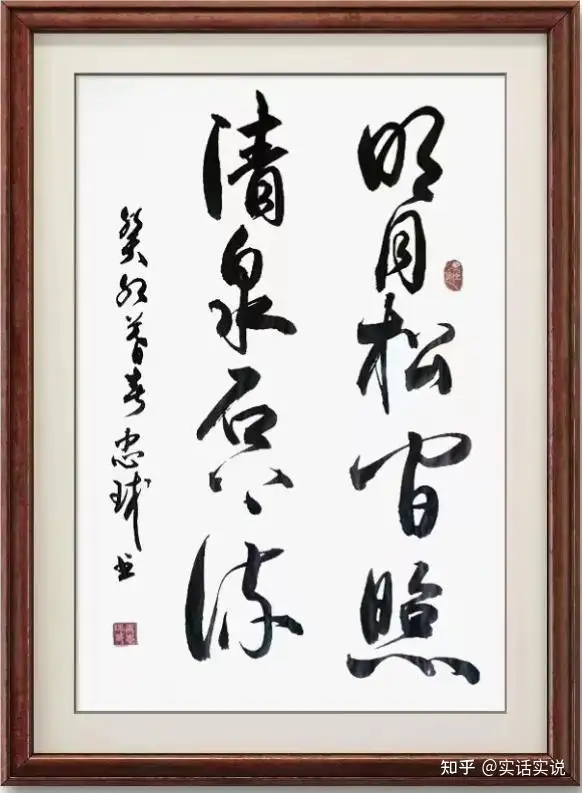 明月松间照
清泉石上流
癸卯暮春忠球书
知乎 @实话实说